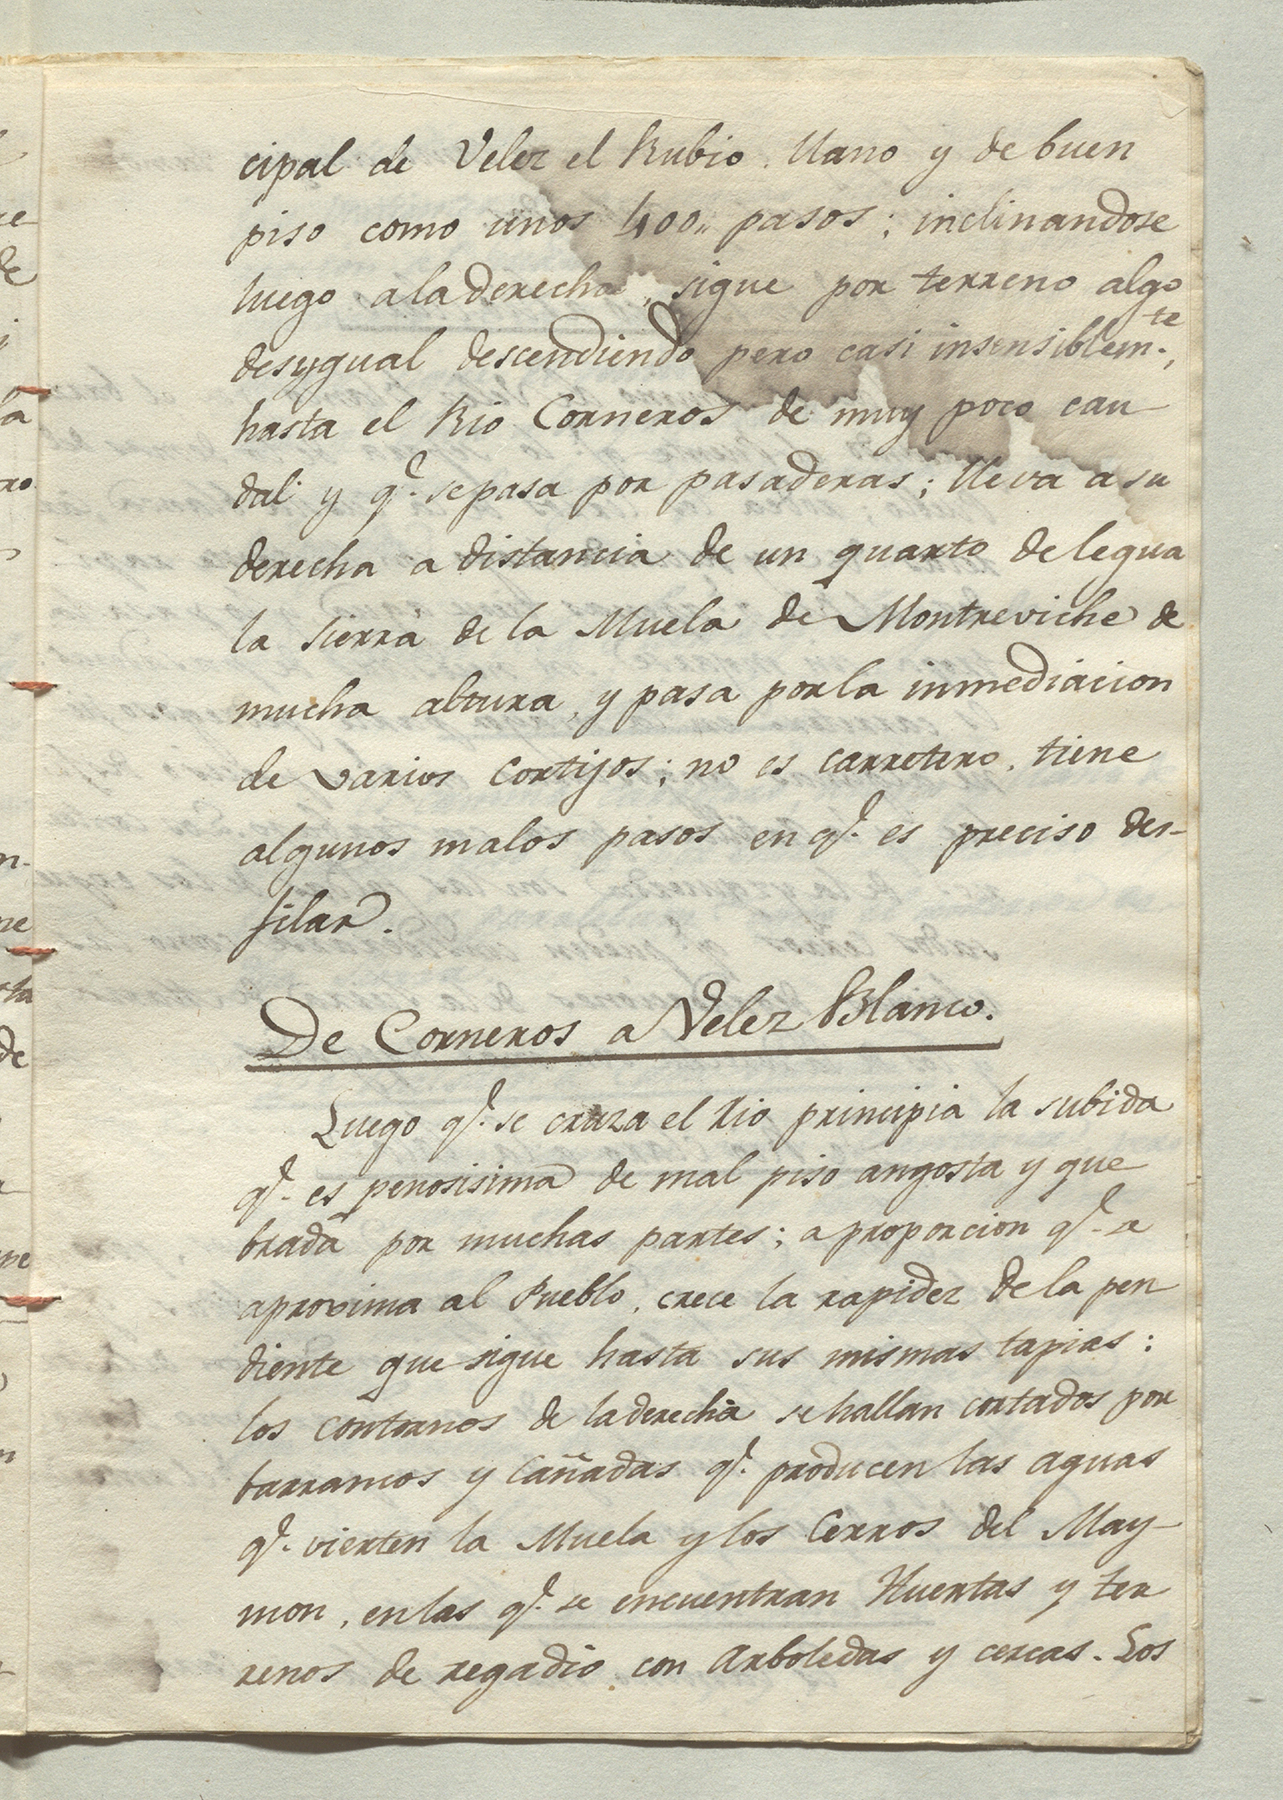 cipal de Velez el Rubio. llano y de buen
piso como unos 400,, pasos; inclinandose
luego a la derecha, sigue por terreno algo
desygual descendiendo pero casi insensiblem.te,
hasta el Rio Corneros de muy poco cau
dal y q.e se pasa por pasaderas; lleva a su
derecha a distancia de un quarto de legua
la sierra de la Muela de Montreviche de
mucha altura, y pasa por la inmediacion
de varios Cortijos; no es carretero, tiene
algunos malos pasos en q.e es preciso des-
filar.
De Corneros a Velez Blanco.
Luego q.e se cruza el Rio principia la subida
q.e es penosisima de mal piso angosta y que
brada por muchas partes; a proporcion q.e se
aproxima al Pueblo, crece la rapidez de la pen
diente que sigue hasta sus mismas tapias:
los contornos de la derecha se hallan cortados por
barrancos y Cañadas q.e producen las aguas
q.e vierten la Muela y los Cerros del May-
mon, en las q.e se encuentran Huertas y ter
renos de regadio con Arboledas y cercas. Los